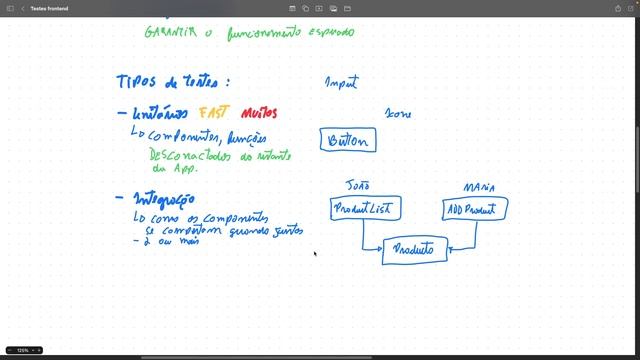 Testes frontend
GARANTIR o funcionamento esperado
TIPOS de testes :
Input
- Unitários FAST MUITOS
Icone
↳ componentes, funções
Button
DESCONACTADOS do restante
da App.
- Integração
JOÃO
MARIA
↳ como os componentes
se comportam quando juntos
- 2 ou mais
ProductList
ADD Product
Products
125%